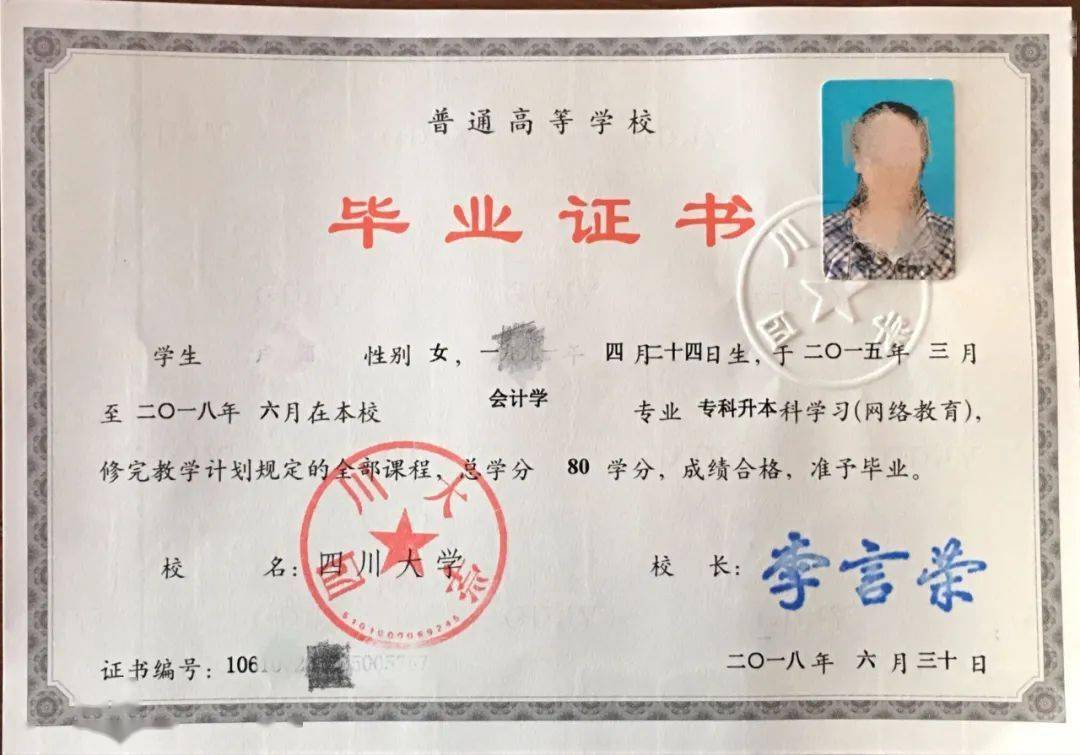 普通高等学校
毕业证书
学生 性别 女，一九九一年 四月二十四日生，于二〇一五年 三月
至二〇一八年 六月在本校 会计学 专业 专科升本科学习(网络教育)，
修完教学计划规定的全部课程，总学分 80 学分，成绩合格，准予毕业。
校 名：四川大学 校 长：李言荣
四川大学
证书编号：106 二〇一八年 六月三十日